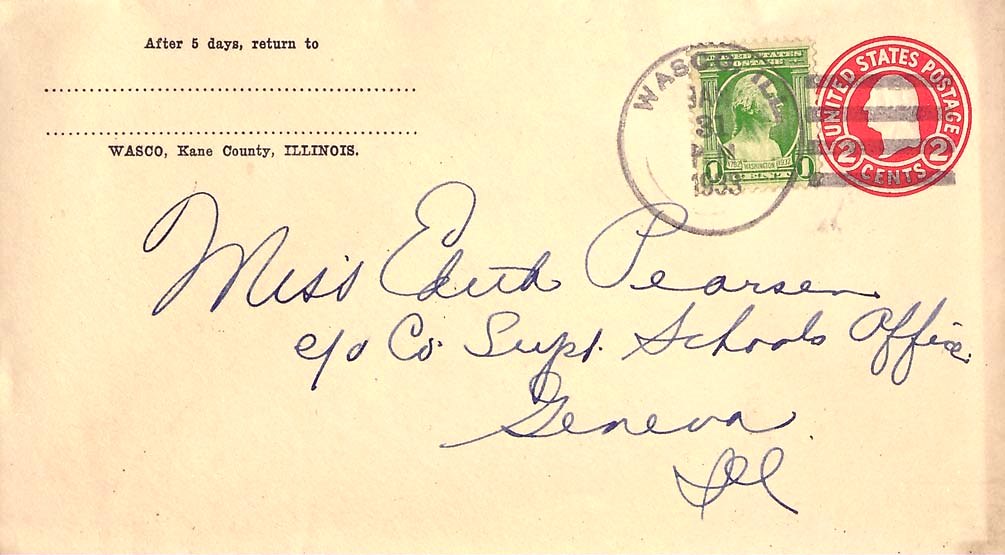 After 5 days, return to
WASCO, Kane County, ILLINOIS.
WASCO ILL.
31
1933
UNITED STATES
POSTAGE
1732 WASHINGTON 1932
1 CENT 1
UNITED STATES POSTAGE
2 CENTS 2
Miss Edith Pearsen
c/o Co. Supt. Schools Office
Geneva
Ill